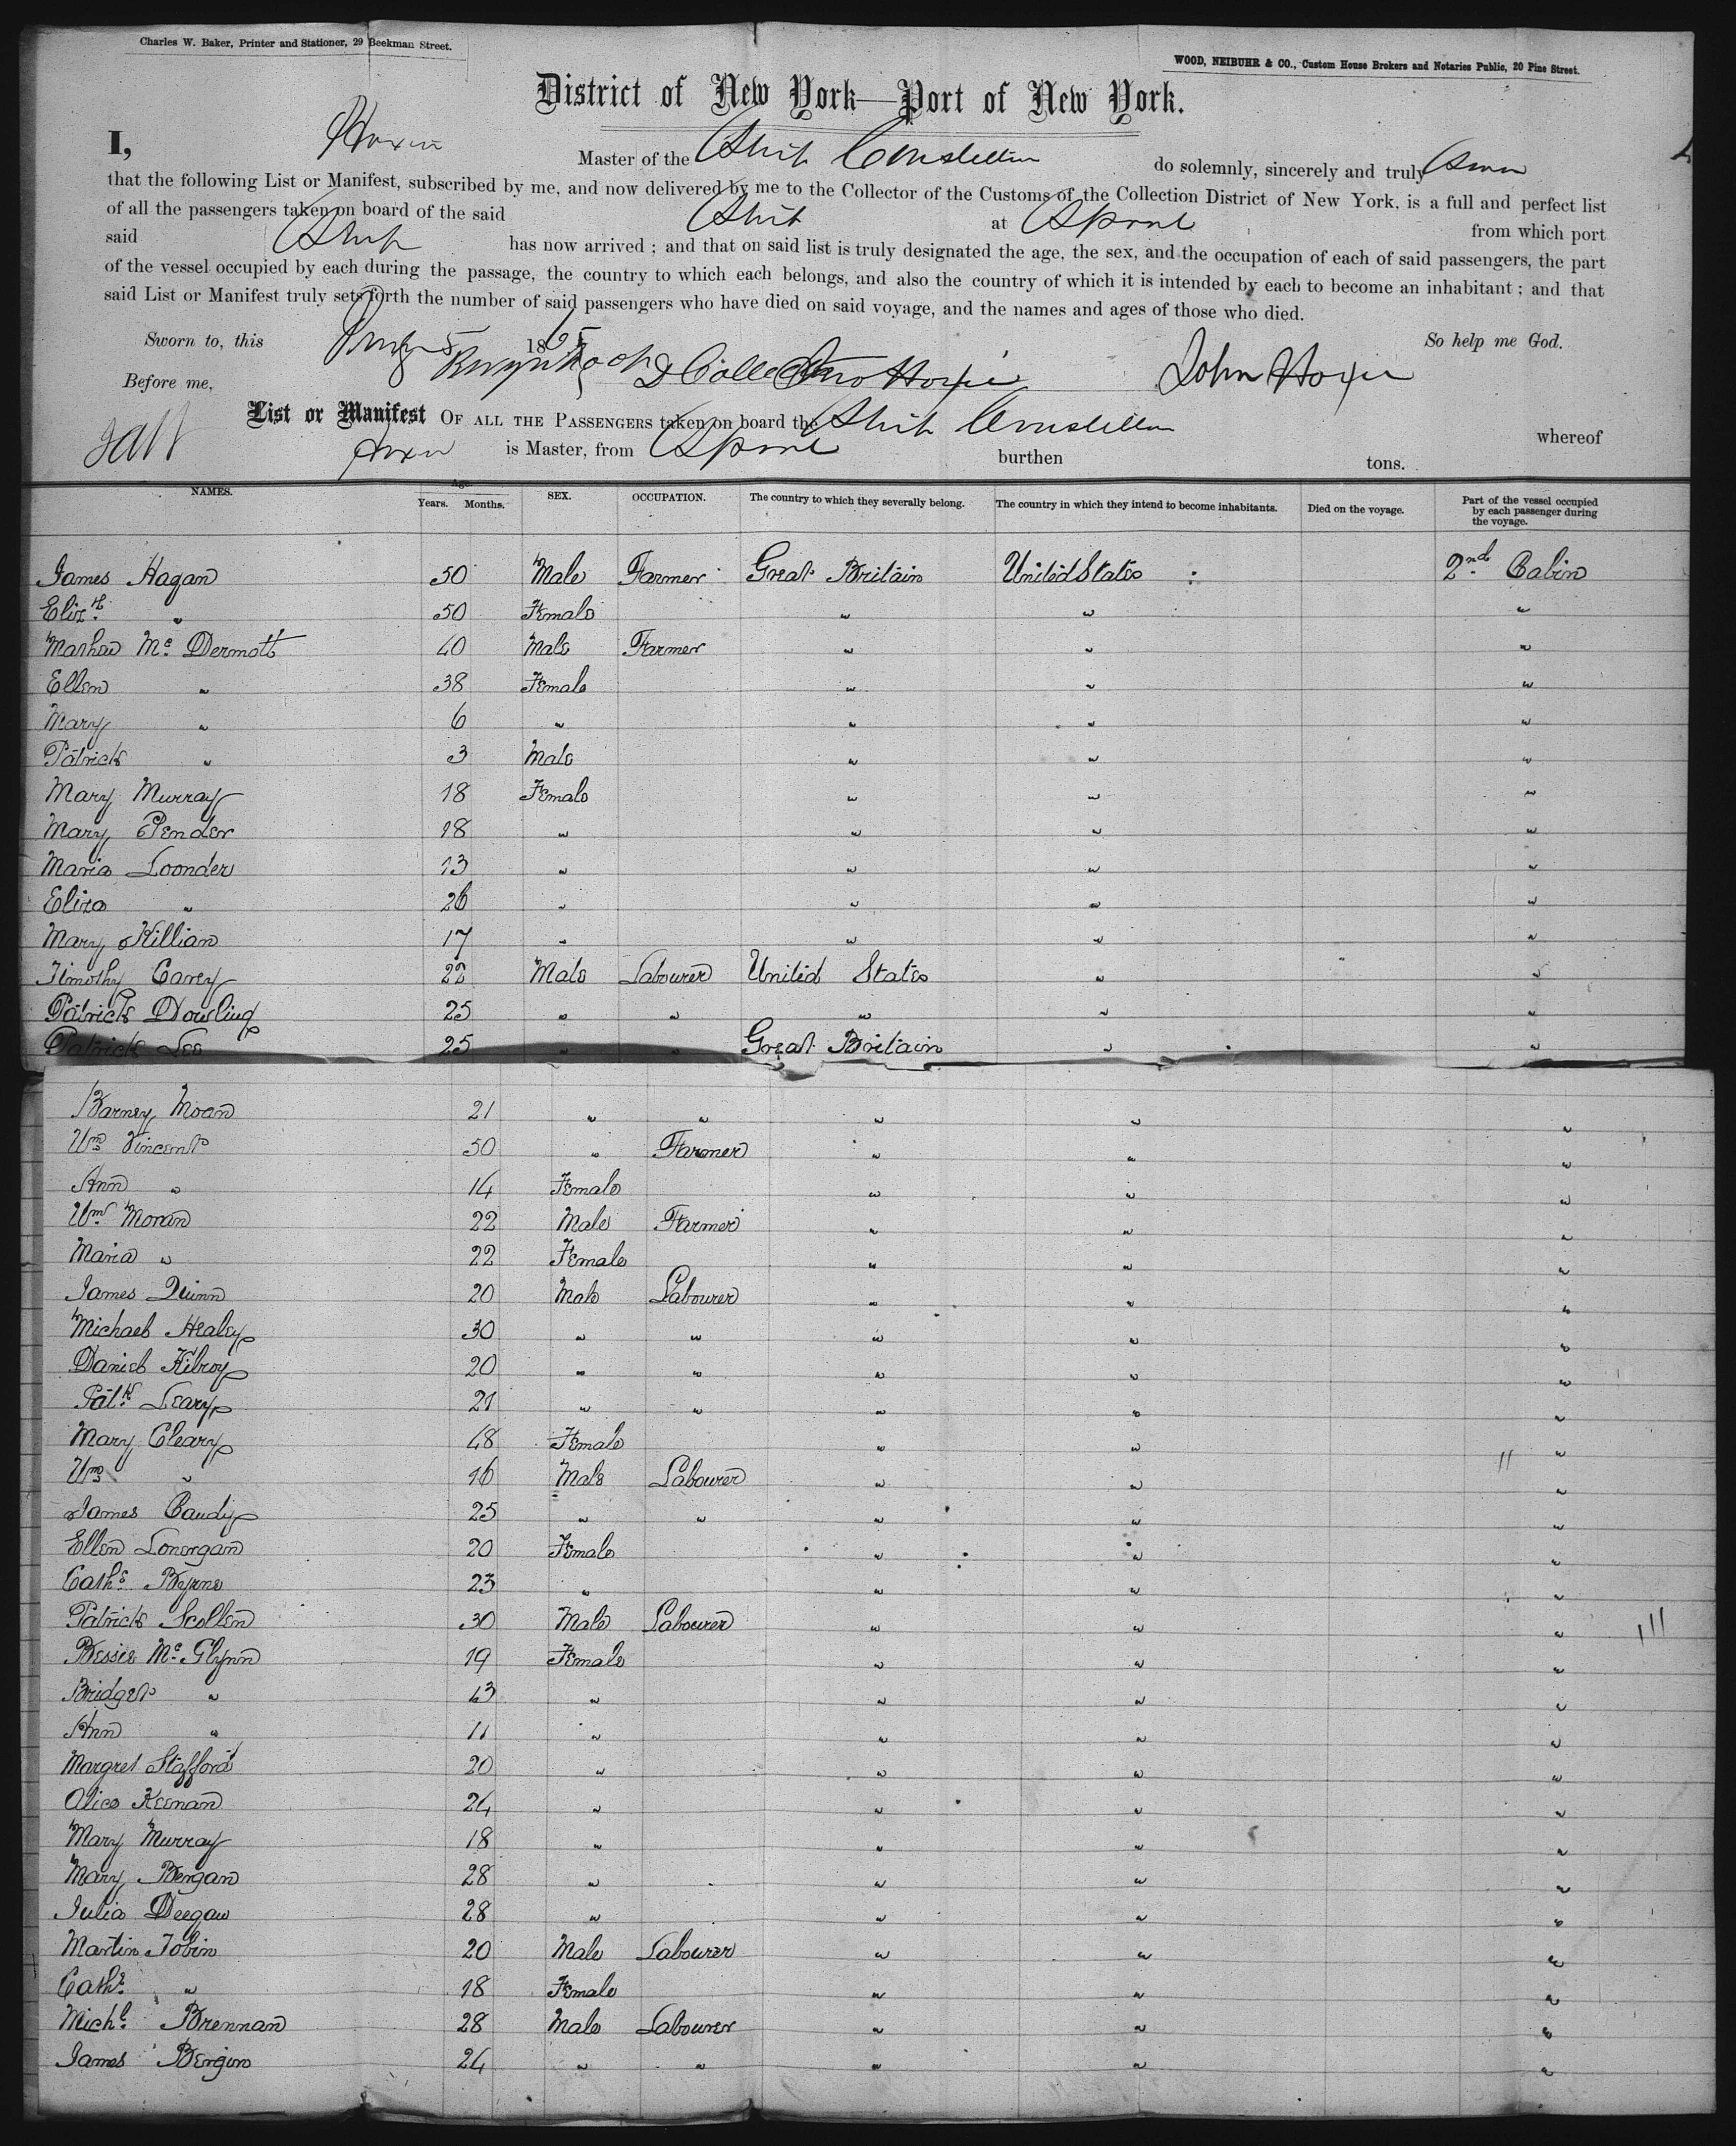 Charles W. Baker, Printer and Stationer, 29 Beekman Street.
WOOD, NEIBUHR & CO., Custom House Brokers and Notaries Public, 20 Pine Street.
District of New York—Port of New York.
I, Hoxie Master of the Ship Constellation do solemnly, sincerely and truly Swear
that the following List or Manifest, subscribed by me, and now delivered by me to the Collector of the Customs of the Collection District of New York, is a full and perfect list
of all the passengers taken on board of the said Ship at LPool from which port
said Ship has now arrived ; and that on said list is truly designated the age, the sex, and the occupation of each of said passengers, the part
of the vessel occupied by each during the passage, the country to which each belongs, and also the country of which it is intended by each to become an inhabitant ; and that
said List or Manifest truly sets forth the number of said passengers who have died on said voyage, and the names and ages of those who died.
Sworn to, this 5 1865 So help me God.
Before me, D Collector Jno Hoxie John Hoxie
List or Manifest OF ALL THE PASSENGERS taken on board the Ship Constellation whereof
Hoxie is Master, from LPool burthen tons.
NAMES. Age. Years. Months. SEX. OCCUPATION. The country to which they severally belong. The country in which they intend to become inhabitants. Died on the voyage. Part of the vessel occupied by each passenger during the voyage.
James Hagan 50 Male Farmer Great Britain United States 2nd Cabin
Elizh " 50 Female " " "
Mathew Mc Dermott 40 Male Farmer " " "
Ellen " 38 Female " " "
Mary " 6 " " " "
Patrick " 3 Male " " "
Mary Murray 18 Female " " "
Mary Pender 18 " " " "
Maria Loonder 13 " " " "
Eliza " 26 " " " "
Mary Killian 17 " " " "
Timothy Carey 22 Male Labourer United States " "
Patrick Dowling 25 " " " " "
Patrick Lee 25 " " Great Britain " "
Barney Moan 21 " " " " "
Wm Vincent 50 " Farmer " " "
Ann " 14 Female " " "
Wm Moran 22 Male Farmer " " "
Maria " 22 Female " " "
James Quinn 20 Male Labourer " " "
Michael Healey 30 " " " " "
Daniel Kilroy 20 " " " " "
Patk Leary 21 " " " " "
Mary Cleary 48 Female " " "
Wm " 16 Male Labourer " " "
James Caudy 25 " " " " "
Ellen Lonergan 20 Female " " "
Cathe Byrne 23 " " " "
Patrick Scollen 30 Male Labourer " " "
Bessie Mc Glynn 19 Female " " "
Bridget " 43 " " " "
Ann " 11 " " " "
Margret Stafford 20 " " " "
Alice Keenan 24 " " " "
Mary Murray 18 " " " "
Mary Bergan 28 " " " "
Julia Deegan 28 " " " "
Martin Tobin 20 Male Labourer " " "
Cathe " 18 Female " " "
Michl Brennan 28 Male Labourer " " "
James Bergin 24 " " " " "